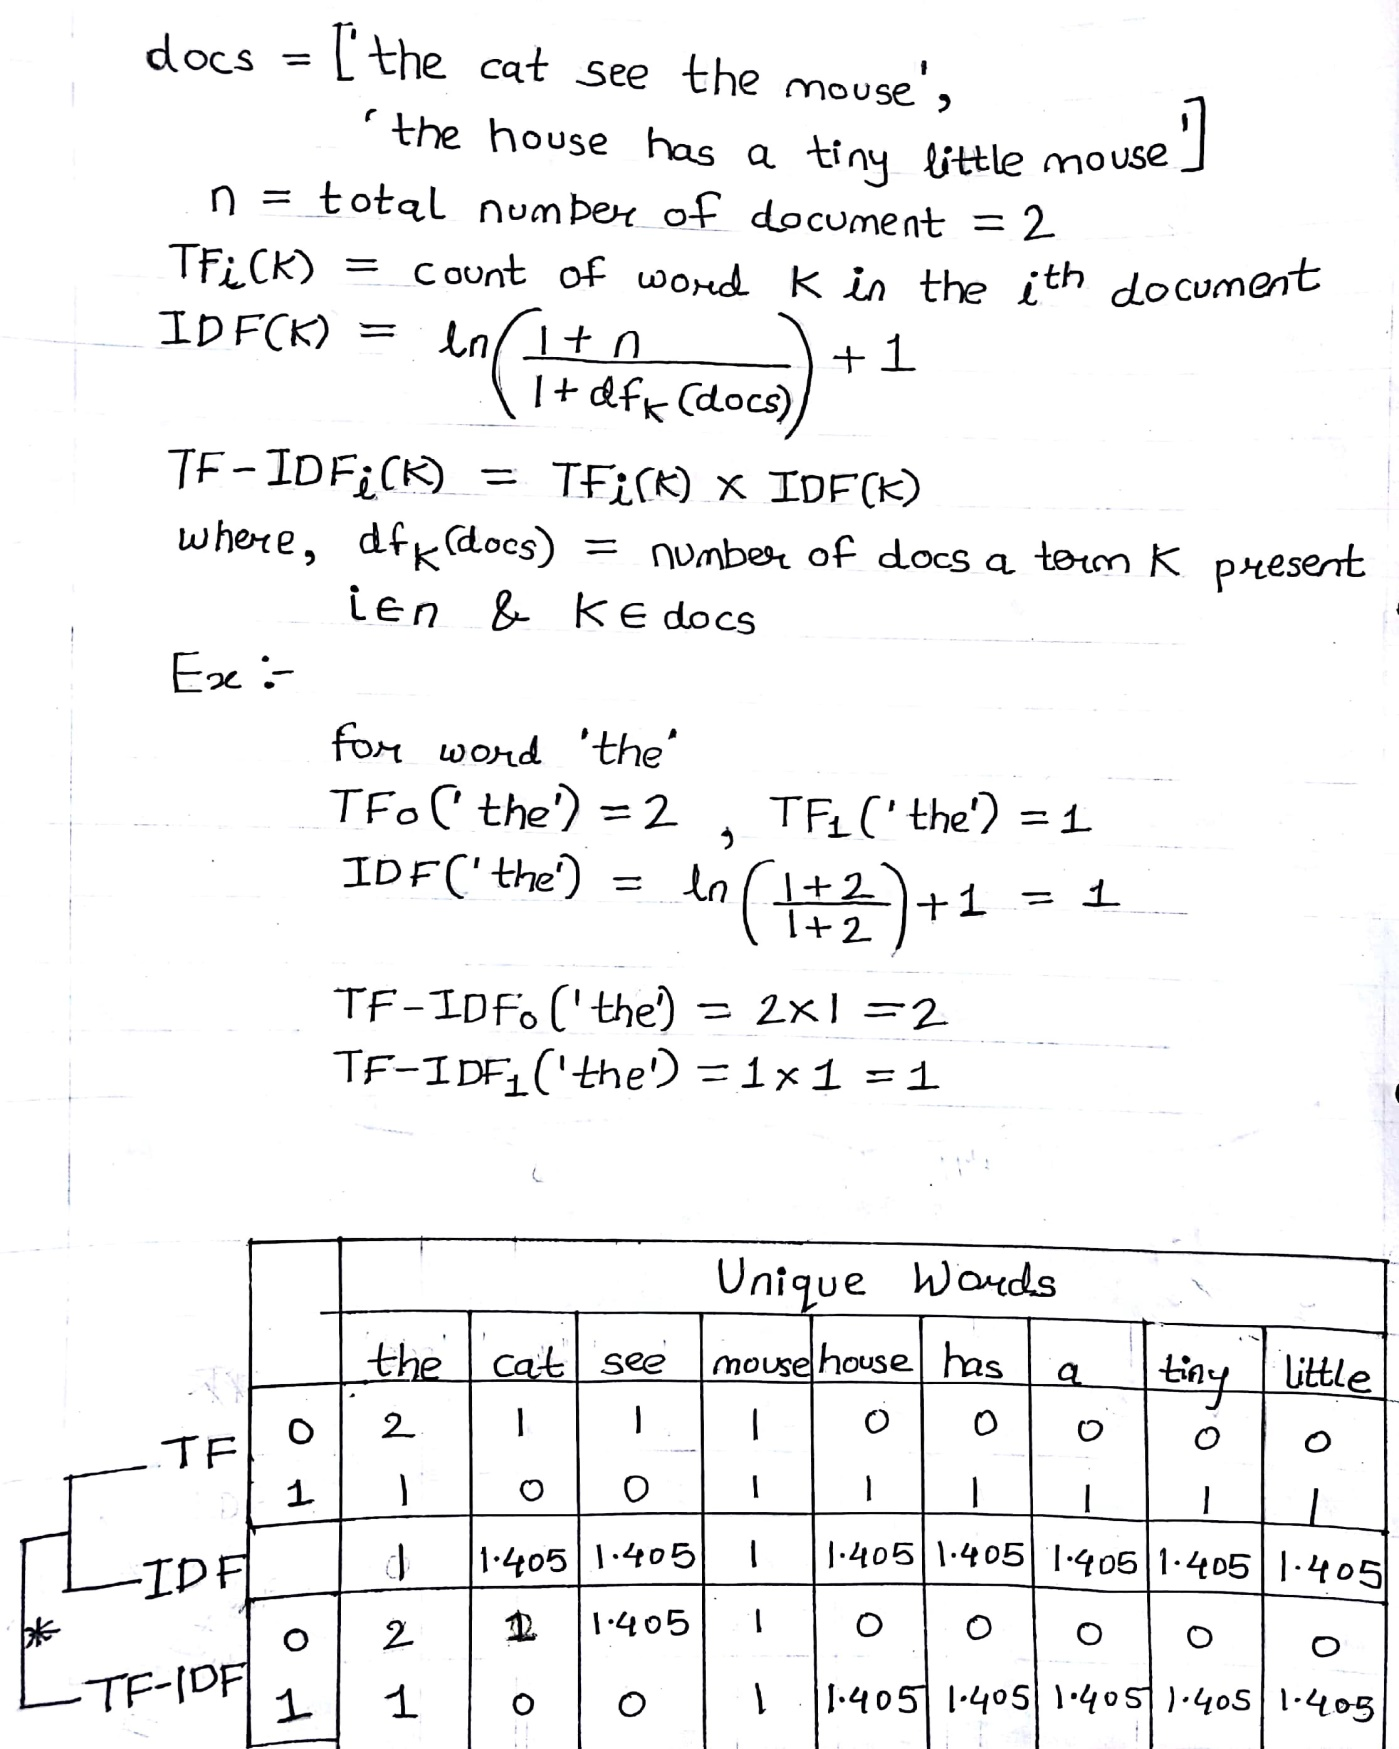 docs = ['the cat see the mouse',
'the house has a tiny little mouse']
n = total number of document = 2
TFi(K) = count of word K in the ith document
IDF(K) = ln(1+n / 1+dfK(docs)) + 1
TF-IDFi(K) = TFi(K) x IDF(K)
where, dfK(docs) = number of docs a term K present
i∈n & K∈docs
Ex :-
for word 'the'
TF0('the') = 2 , TF1('the') = 1
IDF('the') = ln(1+2 / 1+2) + 1 = 1
TF-IDF0('the') = 2x1 = 2
TF-IDF1('the') = 1x1 = 1
Unique Words
the cat see mouse house has a tiny little
TF 0 2 1 1 1 0 0 0 0 0
1 1 0 0 1 1 1 1 1 1
IDF 1 1.405 1.405 1 1.405 1.405 1.405 1.405 1.405
* TF-IDF 0 2 1.405 1 0 0 0 0 0
1 1 0 0 1 1.405 1.405 1.405 1.405 1.405